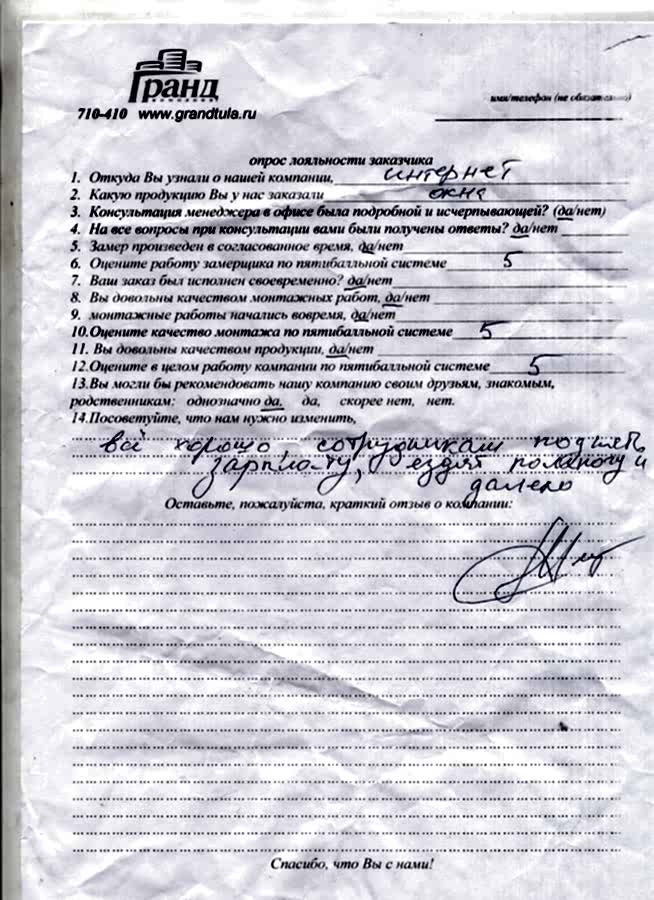 Гранд
компания
710-410 www.grandtula.ru
имя/телефон (не обязательно)
опрос лояльности заказчика
1. Откуда Вы узнали о нашей компании, интернет
2. Какую продукцию Вы у нас заказали окна
3. Консультация менеджера в офисе была подробной и исчерпывающей? (да/нет)
4. На все вопросы при консультации вами были получены ответы? да/нет
5. Замер произведен в согласованное время, да/нет
6. Оцените работу замерщика по пятибалльной системе 5
7. Ваш заказ был исполнен своевременно? да/нет
8. Вы довольны качеством монтажных работ, да/нет
9. монтажные работы начались вовремя, да/нет
10.Оцените качество монтажа по пятибалльной системе 5
11. Вы довольны качеством продукции, да/нет
12.Оцените в целом работу компании по пятибалльной системе 5
13.Вы могли бы рекомендовать нашу компанию своим друзьям, знакомым,
родственникам: однозначно да. да, скорее нет, нет.
14.Посоветуйте, что нам нужно изменить,
всё хорошо, сотрудникам поднять
зарплату, ездят помногу и
далеко
Оставьте, пожалуйста, краткий отзыв о компании:
Спасибо, что Вы с нами!